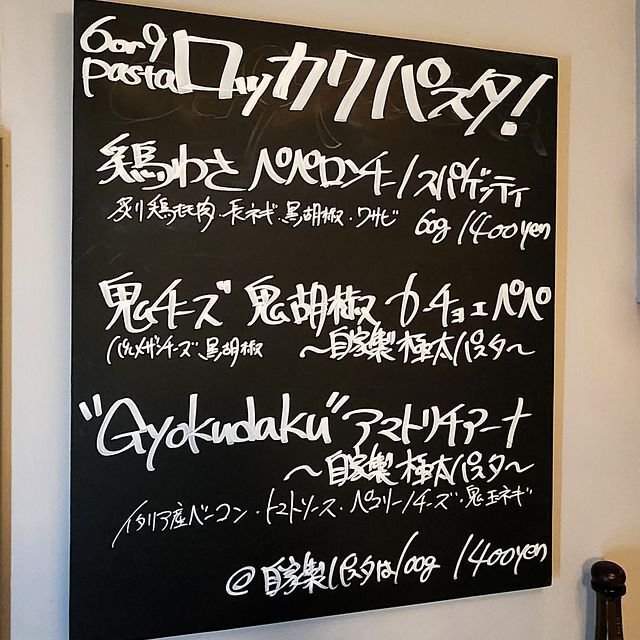 6or9
pasta ロッカクパスタ!
鶏わさペペロンチーノスパゲッティ
炙り鶏もも肉・長ネギ・黒胡椒・ワサビ 60g 1400yen
鬼チーズ 鬼胡椒 カチョエペペ
パルメザンチーズ、黒胡椒 〜自家製極太パスタ〜
"Gyokudaku" アマトリチアーナ
〜自家製極太パスタ〜
イタリア産ベーコン・トマトソース・ペコリーノチーズ・鬼玉ネギ
@自家製パスタは100g 1400yen